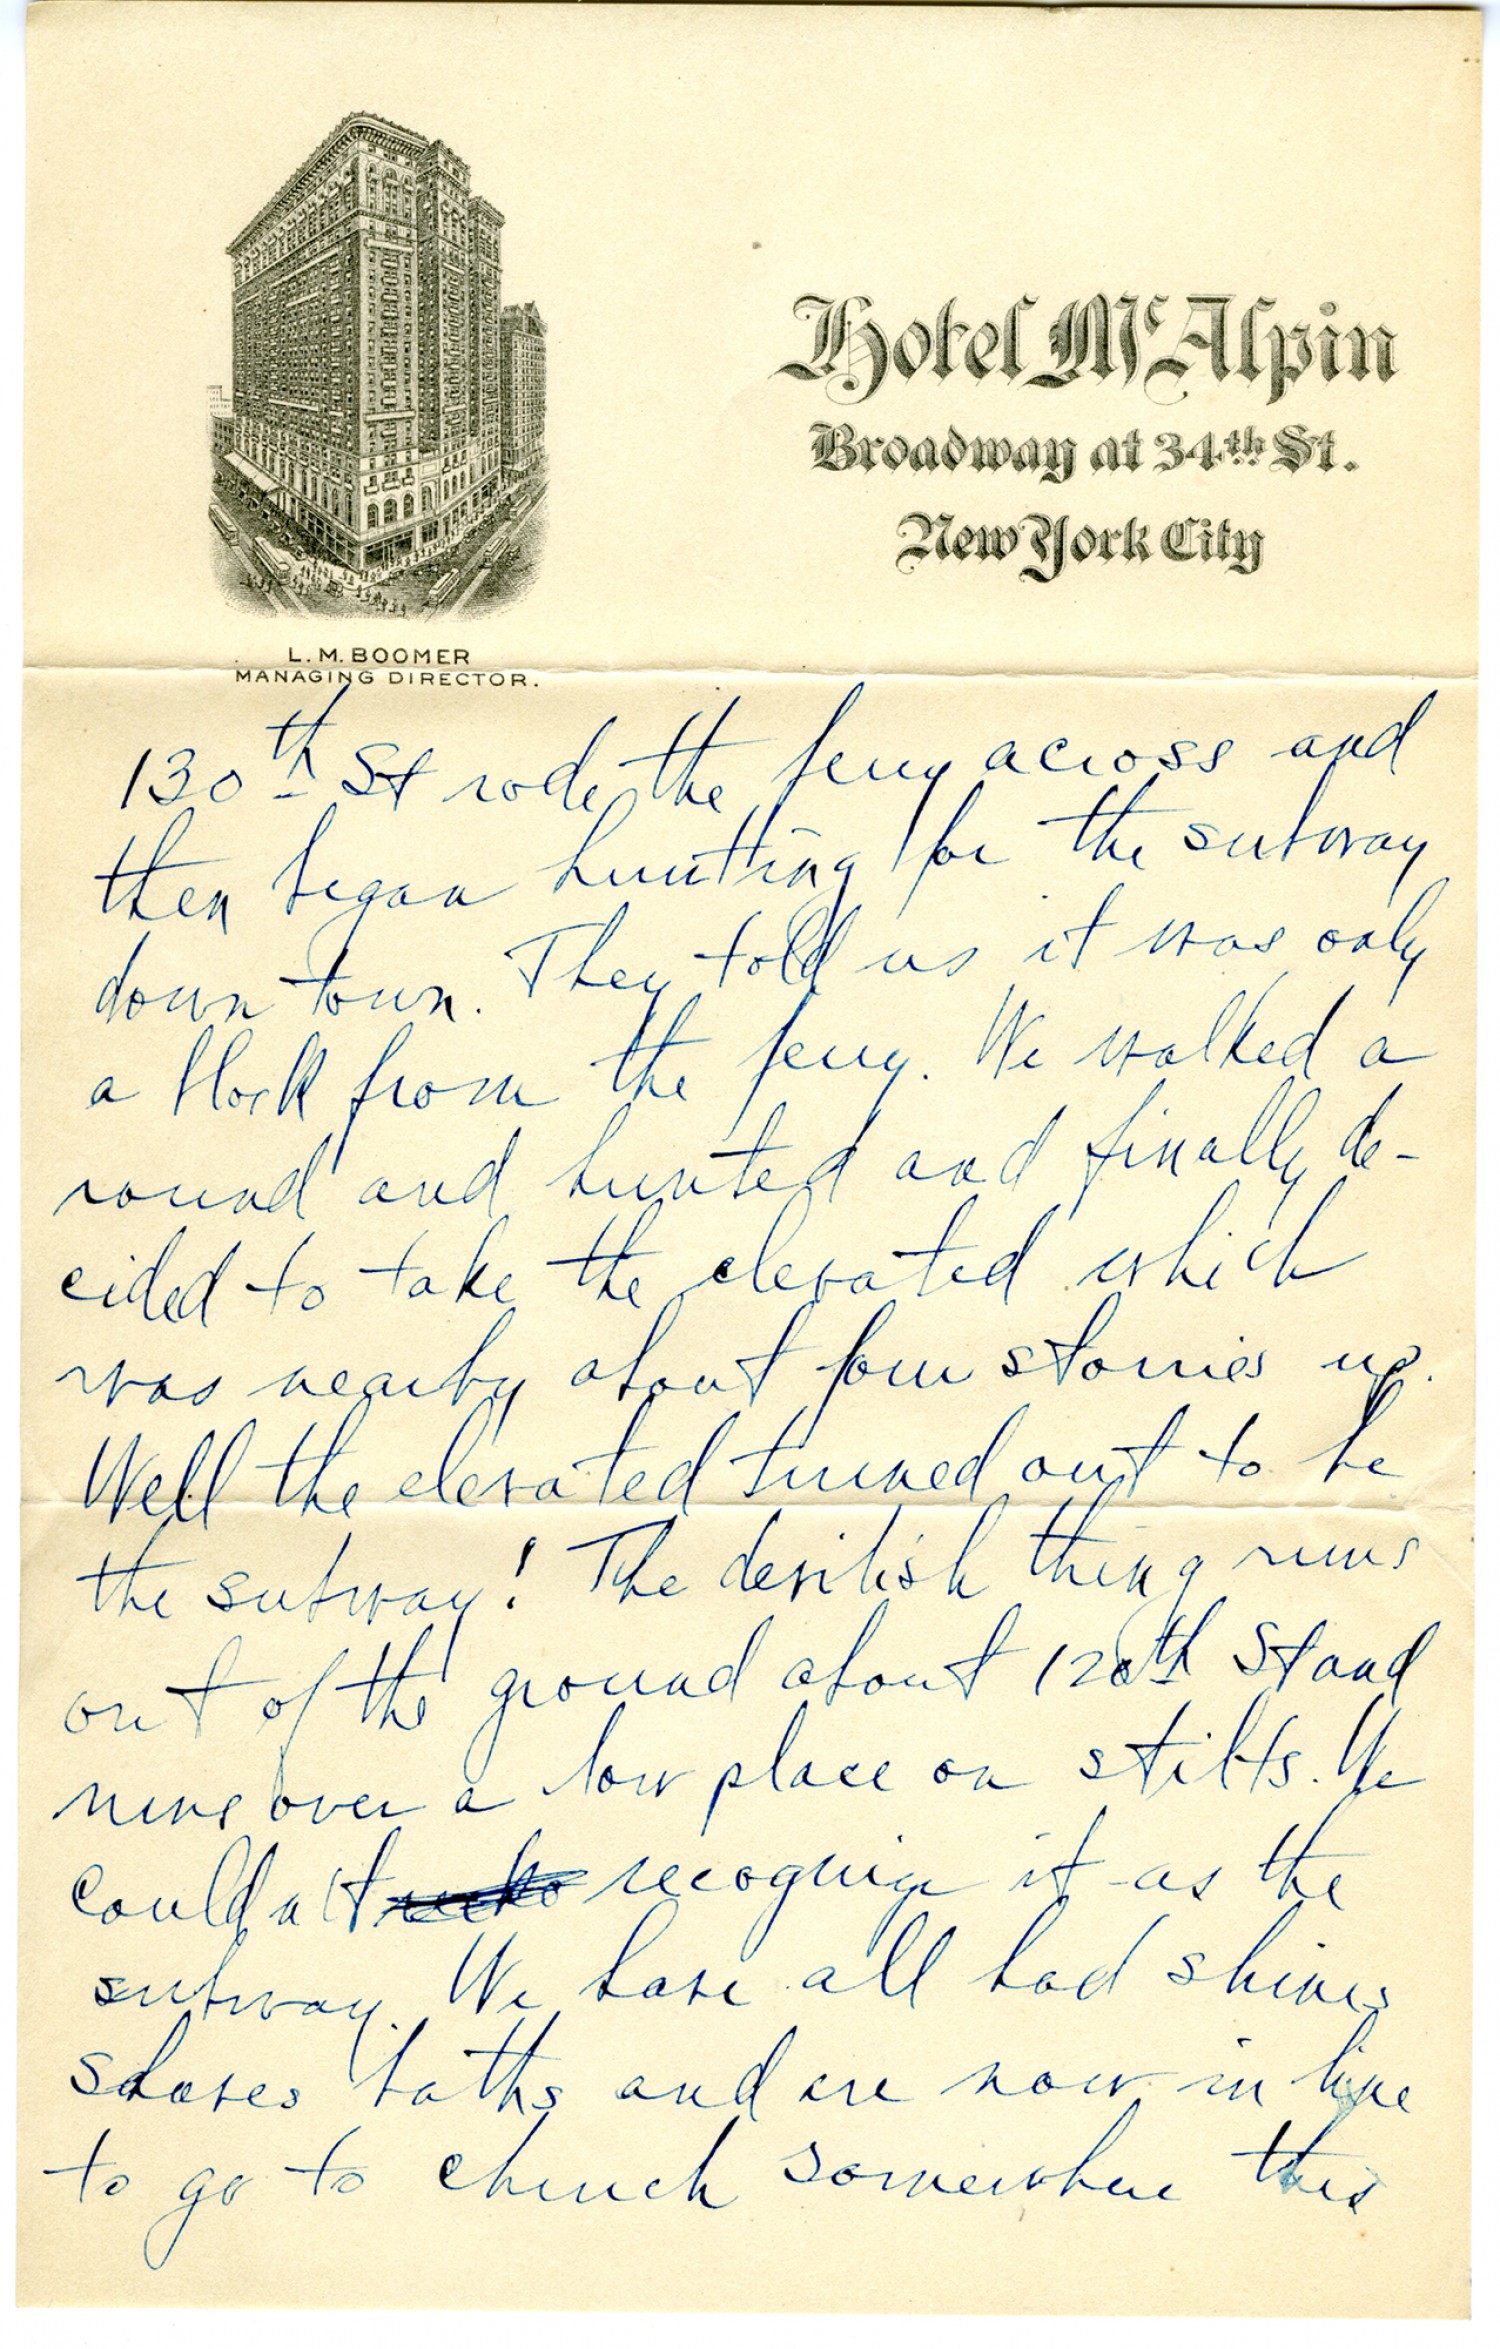 Hotel McAlpin
Broadway at 34th St.
New York City
L. M. BOOMER
MANAGING DIRECTOR.
130th St rode the ferry across and
then began hunting for the subway
down town. They told us it was only
a block from the ferry. We walked a
round and hunted and finally de-
cided to take the elevated which
was nearby about four stories up.
Well the elevated turned out to be
the subway! The devilish thing runs
out of the ground about 120th St and
runs over a low place on stilts. We
couldn't recognize it as the
subway. We have all had shines
shaves baths and are now in line
to go to church somewhere this